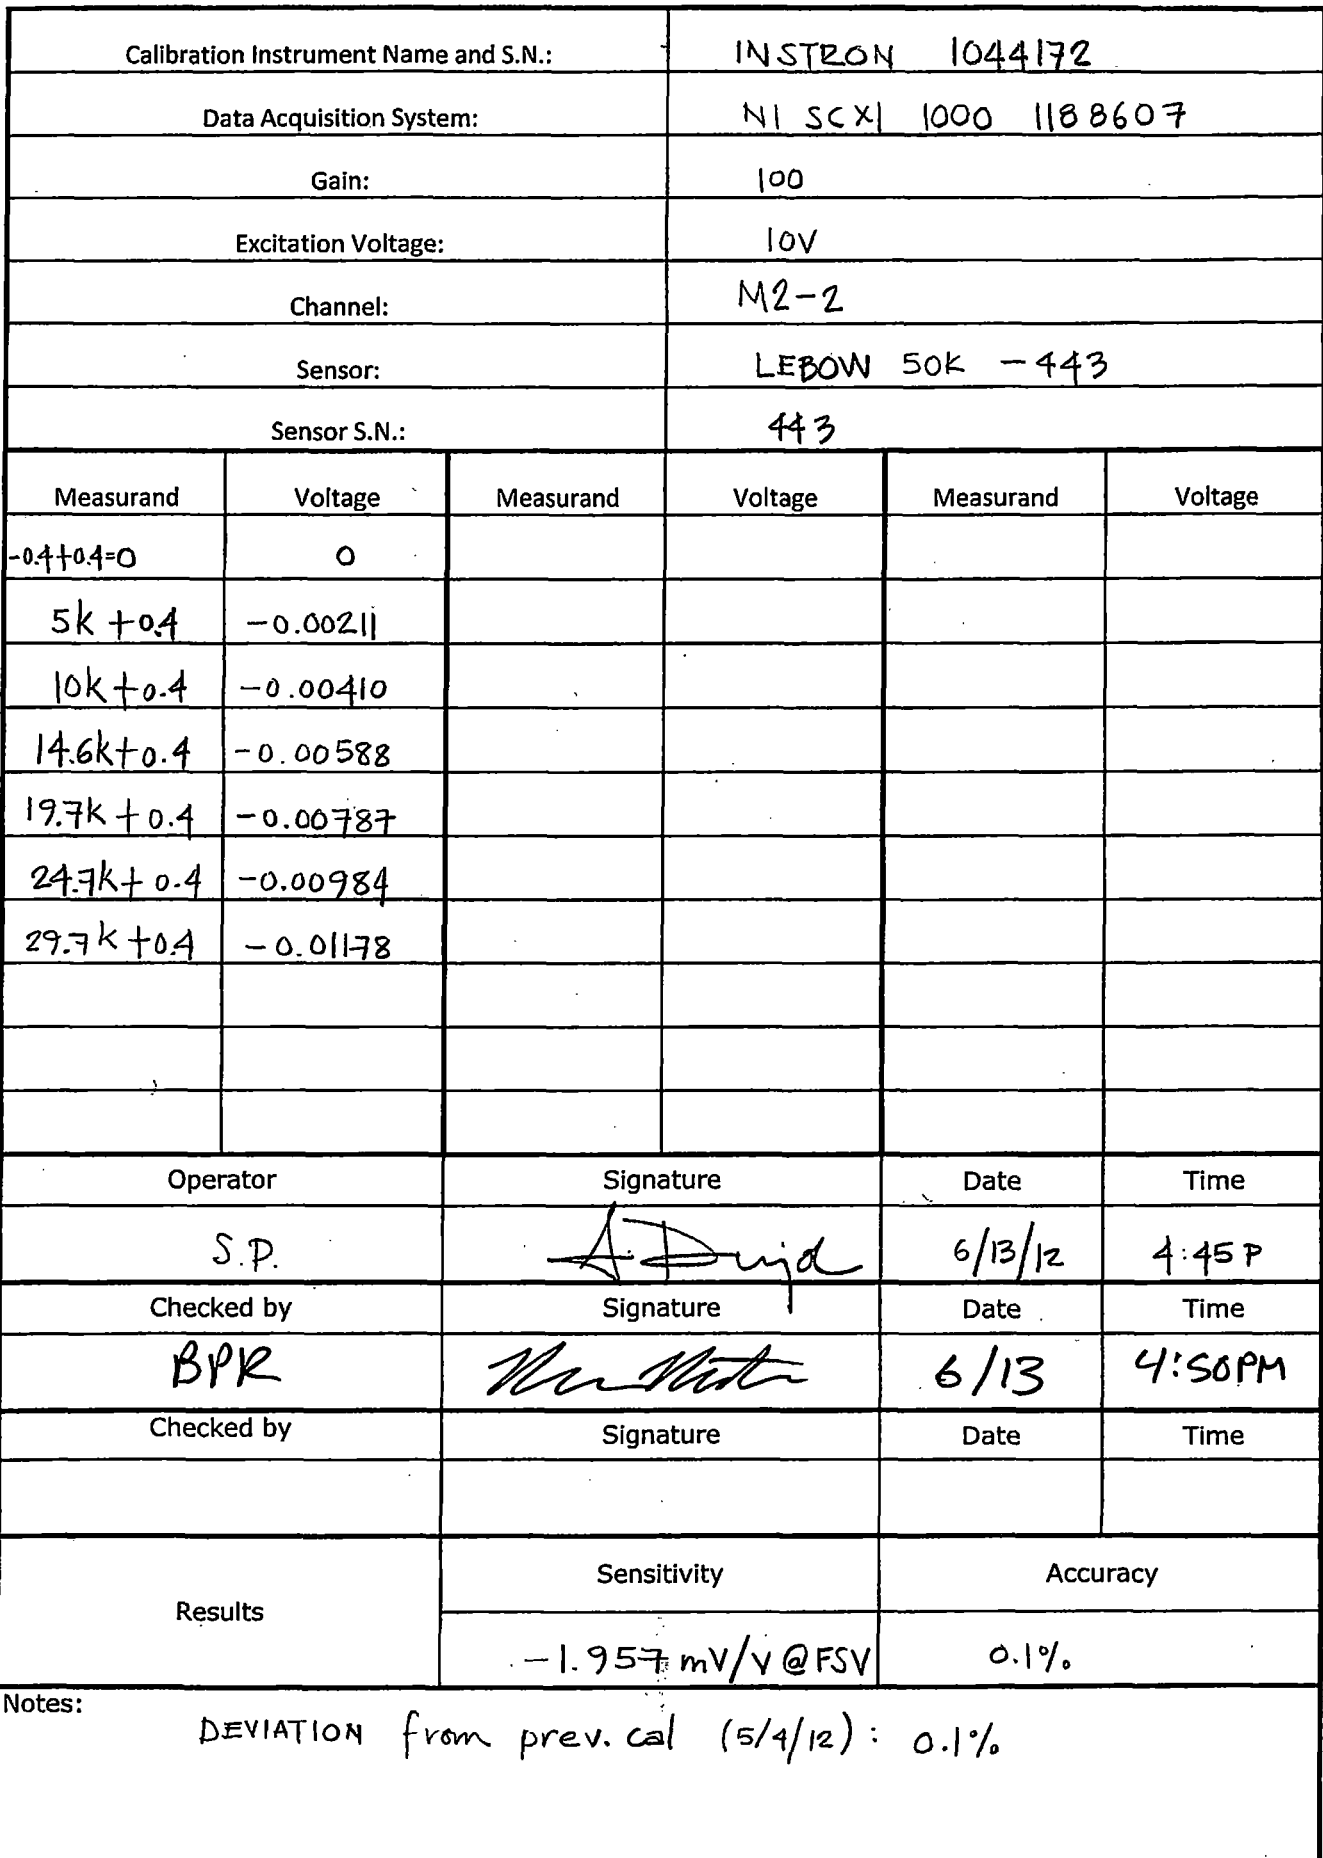 Calibration Instrument Name and S.N.: INSTRON 1044172
Data Acquisition System: NI SCXI 1000 1188607
Gain: 100
Excitation Voltage: 10V
Channel: M2-2
Sensor: LEBOW 50K - 443
Sensor S.N.: 443
Measurand Voltage Measurand Voltage Measurand Voltage
-0.4+0.4=0 0
5k +0.4 -0.00211
10k +0.4 -0.00410
14.6k+0.4 -0.00588
19.7k +0.4 -0.00787
24.7k+ 0.4 -0.00984
29.7k +0.4 -0.01178
Operator Signature Date Time
S.P. 6/13/12 4:45 P
Checked by Signature Date Time
BPR 6/13 4:50PM
Checked by Signature Date Time
Results Sensitivity Accuracy
-1.957 mV/V @FSV 0.1%
Notes:
DEVIATION from prev. cal (5/4/12): 0.1%